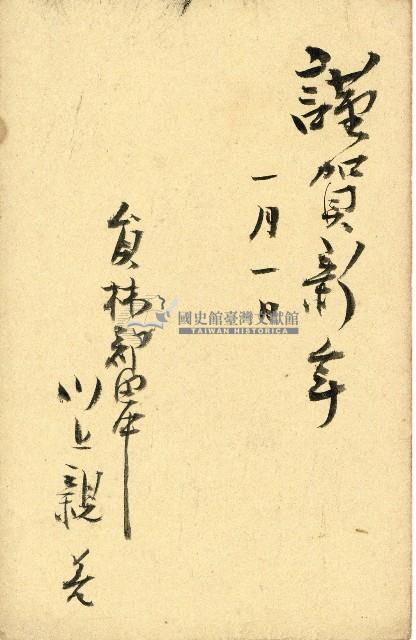 謹賀新年
一月一日
員林郡田中
川上親
國史館臺灣文獻館
TAIWAN HISTORICA